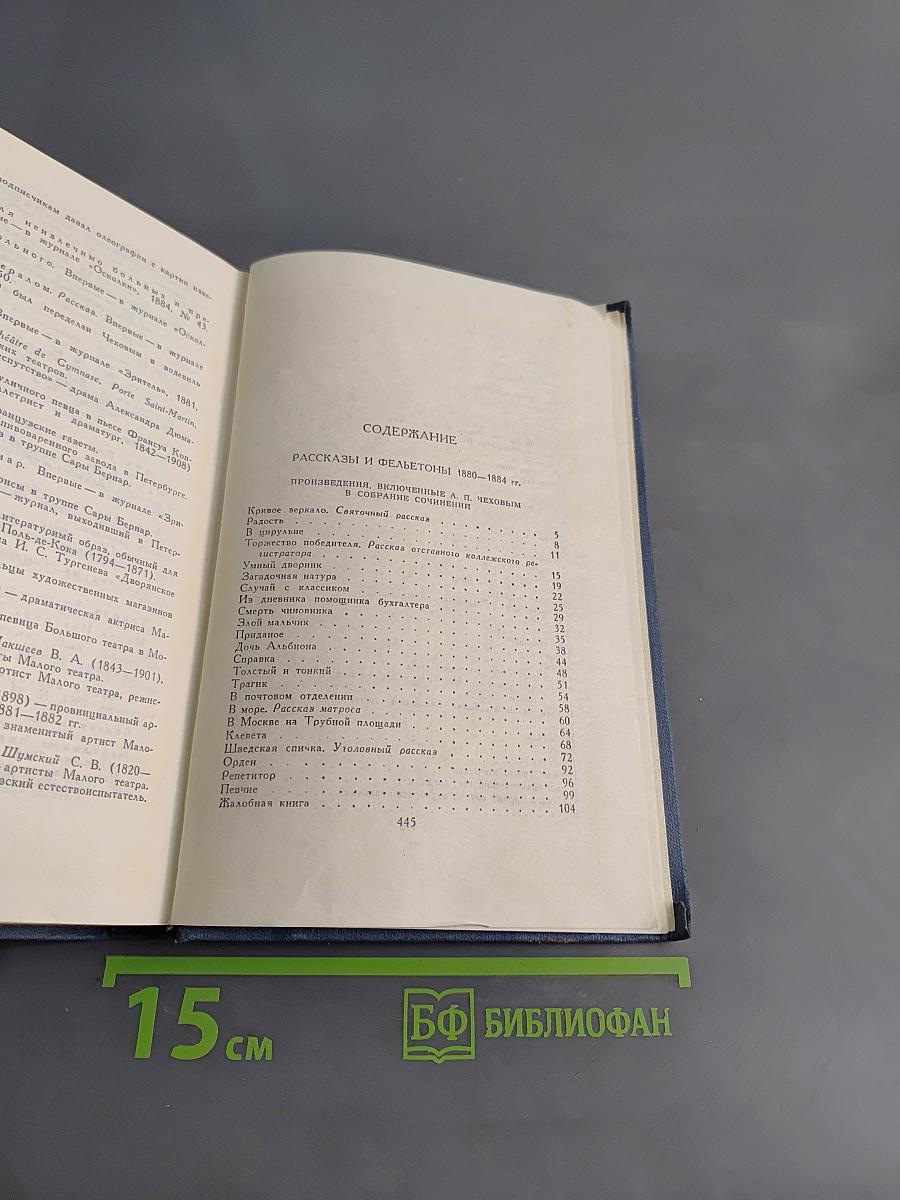 подписчикам давал олеографии с картин изве-
ля неизлечимо больных и пре-
ые — в журнале «Осколки», 1884, № 43.
ольного. Впервые — в журнале «Оскол-
ералом. Рассказ. Впервые — в журнале
50.
был переделан Чеховым в водевиль
Впервые — в журнале «Зритель», 1881,
Théâtre de Gymnase, Porte Saint-Martin,
ких театров.
спутство» — драма Александра Дюма-
уличного певца в пьесе Франсуа Коп-
летрист и драматург, 1842—1908)
ранцузские газеты.
пивоваренного завода в Петербурге.
в в труппе Сары Бернар.
нар. Впервые — в журнале «Зри-
рисы в труппе Сары Бернар.
— журнал, выходивший в Петер-
литературный образ, обычный для
Поль-де-Кока (1794—1871).
на И. С. Тургенева «Дворянское
льцы художественных магазинов
— драматическая актриса Ма-
певица Большого театра в Мо-
Макшеев В. А. (1843—1901),
ты Малого театра.
артист Малого театра, режис-
1898) — провинциальный ар-
881—1882 гг.
знаменитый артист Мало-
Шумский С. В. (1820—
артисты Малого театра.
зский естествоиспытатель.
СОДЕРЖАНИЕ
РАССКАЗЫ И ФЕЛЬЕТОНЫ 1880—1884 гг.
ПРОИЗВЕДЕНИЯ, ВКЛЮЧЕННЫЕ А. П. ЧЕХОВЫМ
В СОБРАНИЕ СОЧИНЕНИЙ
Кривое зеркало. Святочный рассказ . . . . . . 5
Радость . . . . . . 8
В цирульне . . . . . . 11
Торжество победителя. Рассказ отставного коллежского ре-
гистратора . . . . . . 15
Умный дворник . . . . . . 19
Загадочная натура . . . . . . 22
Случай с классиком . . . . . . 25
Из дневника помощника бухгалтера . . . . . . 29
Смерть чиновника . . . . . . 32
Злой мальчик . . . . . . 35
Приданое . . . . . . 38
Дочь Альбиона . . . . . . 44
Справка . . . . . . 48
Толстый и тонкий . . . . . . 51
Трагик . . . . . . 54
В почтовом отделении . . . . . . 58
В море. Рассказ матроса . . . . . . 60
В Москве на Трубной площади . . . . . . 64
Клевета . . . . . . 68
Шведская спичка. Уголовный рассказ . . . . . . 72
Орден . . . . . . 92
Репетитор . . . . . . 96
Певчие . . . . . . 99
Жалобная книга . . . . . . 104
445
15 см
БФ БИБЛИОФАН